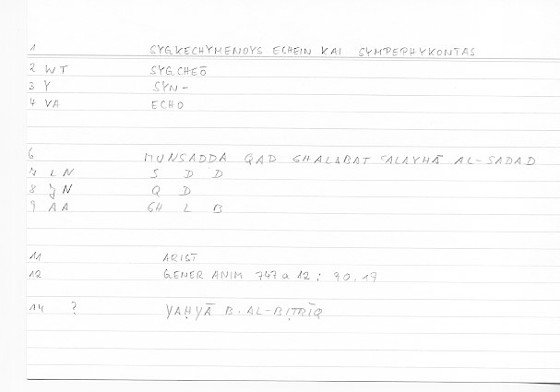 1 SYGKECHYMENOYS ECHEIN KAI SYMPEPHYKONTAS
2 WT SYGCHEŌ
3 Y SYN-
4 VA ECHO
6 MUNSADDA QAD GHALABAT ʿALAYHĀ AL-SADAD
7 LN S D D
8 N Q D
9 AA GH L B
11 ARIST
12 GENER ANIM 747 a 12 : 90.19
14 ? YAḤYĀ B. AL-BIṬRĪQ